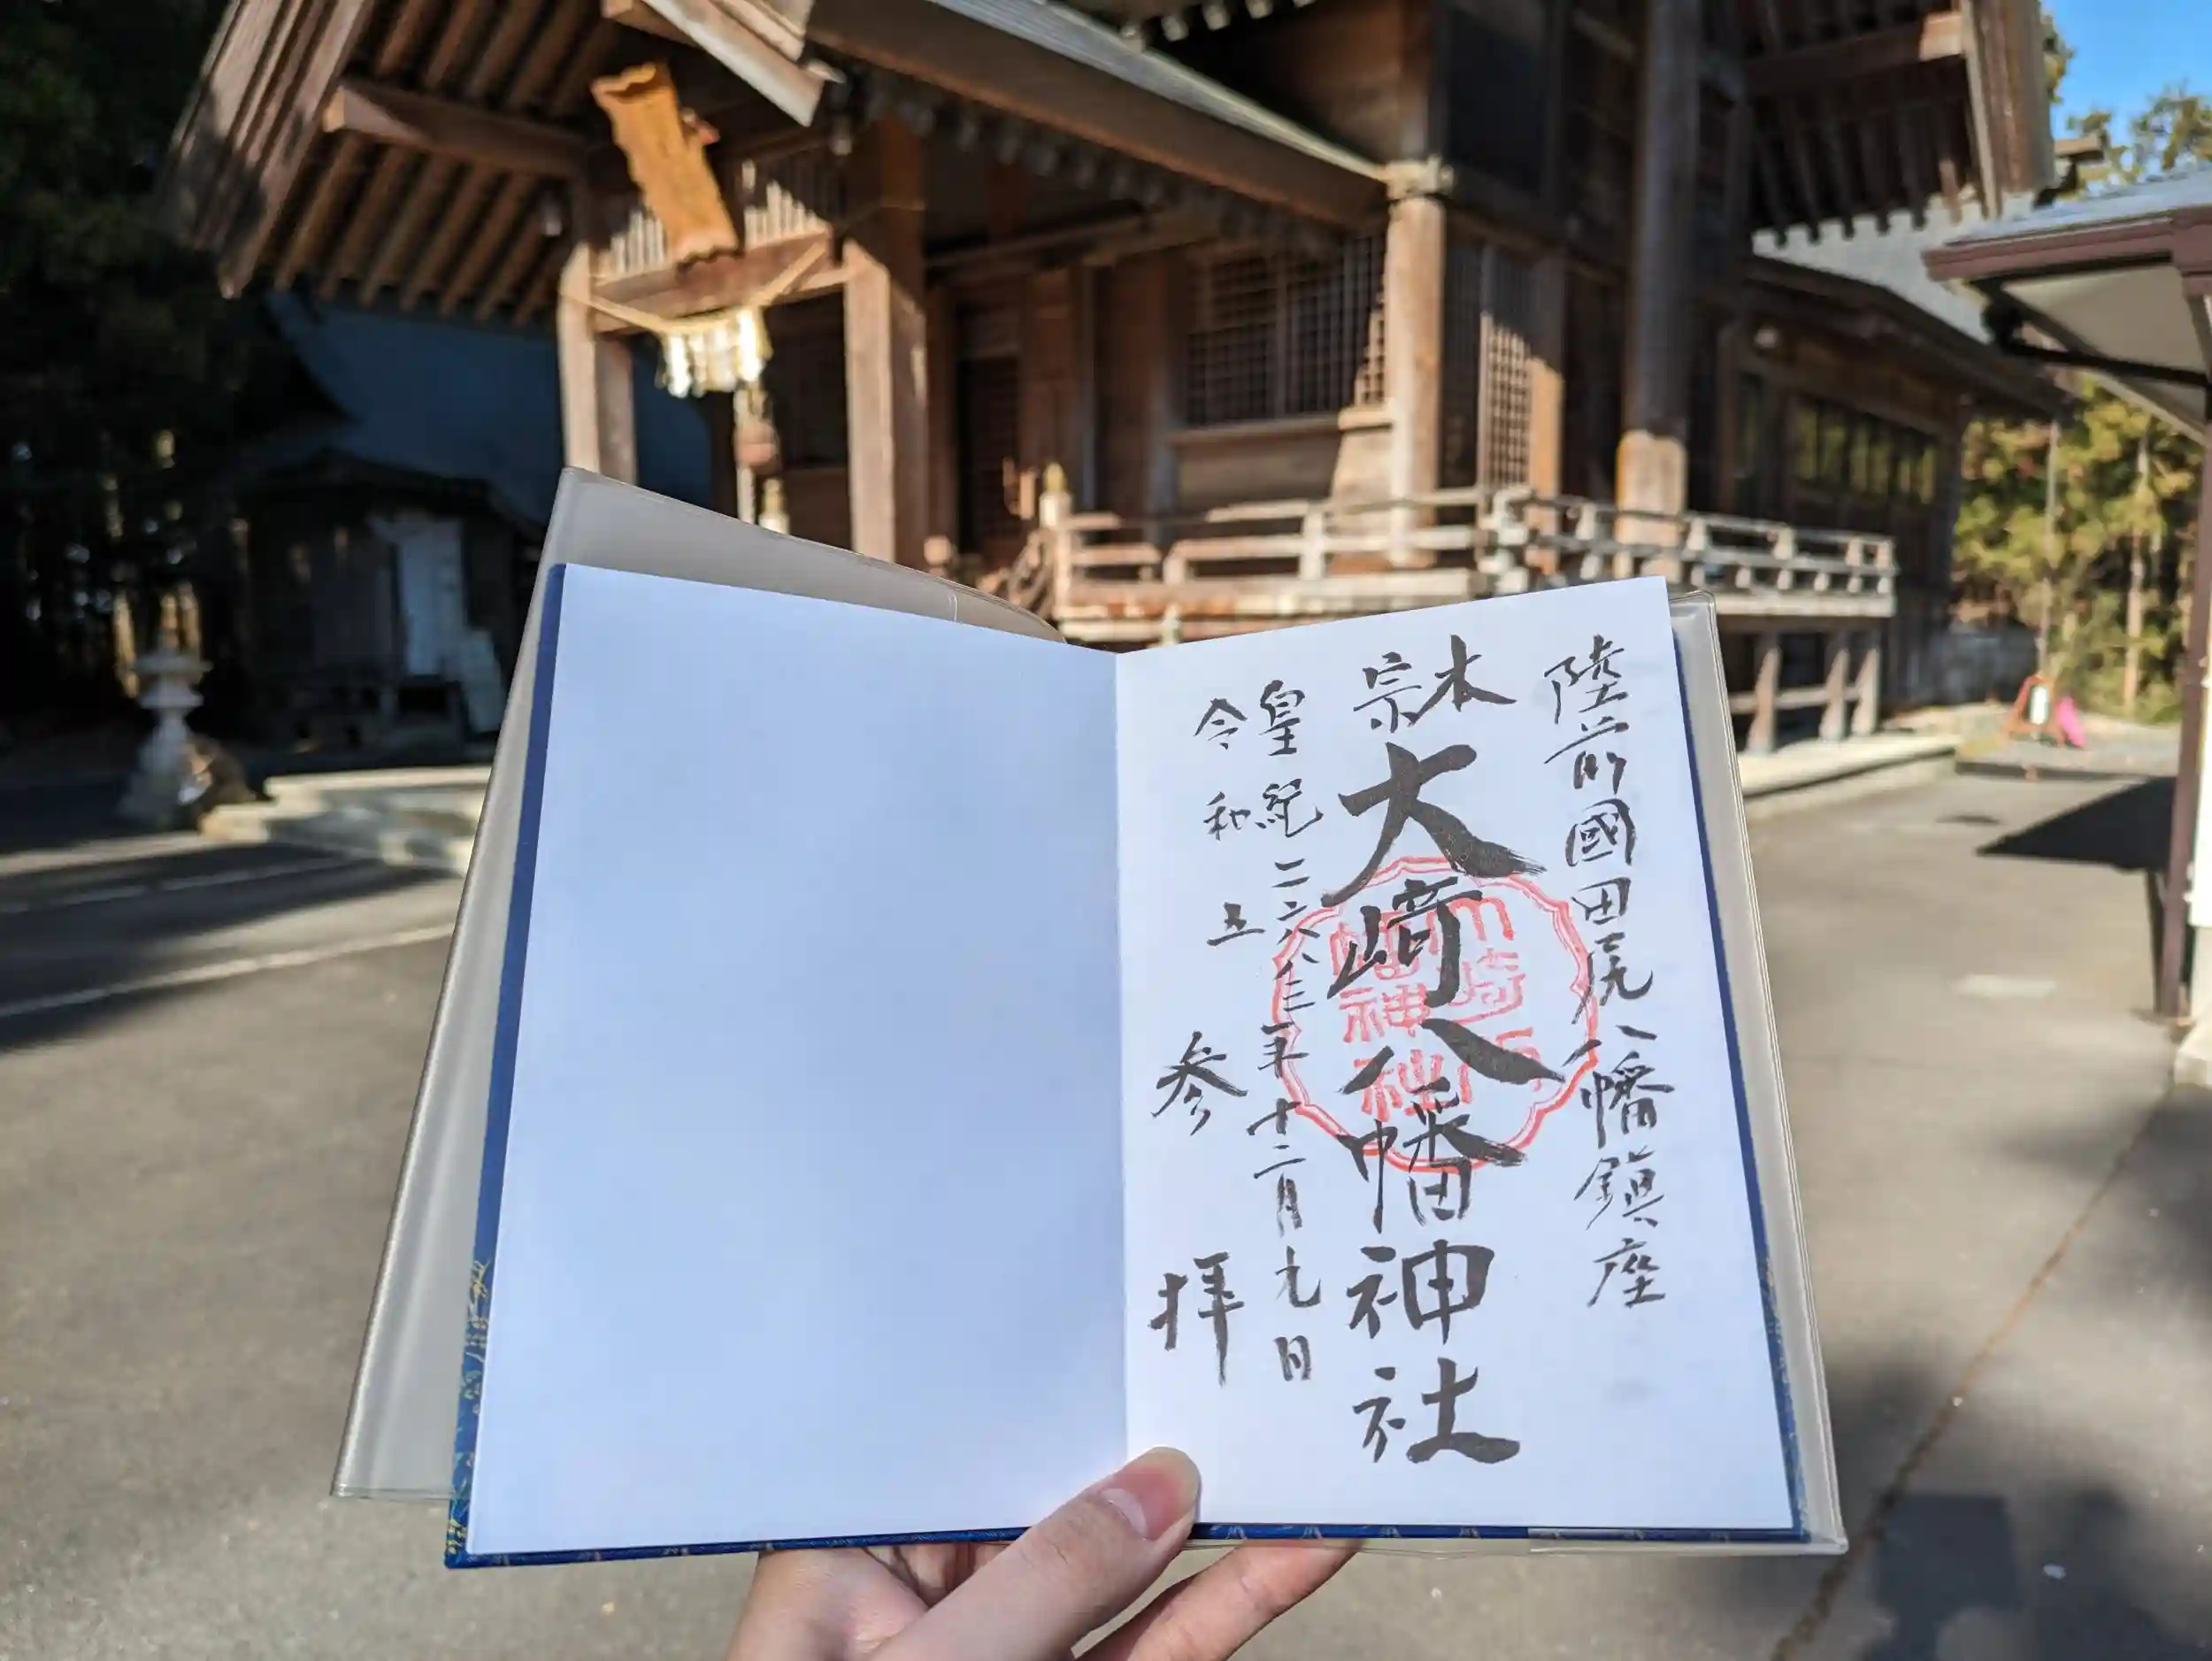 陸前國田尻八幡鎮座
本宗
大崎八幡神社
皇紀二六八三年十二月九日
令和五
参拝